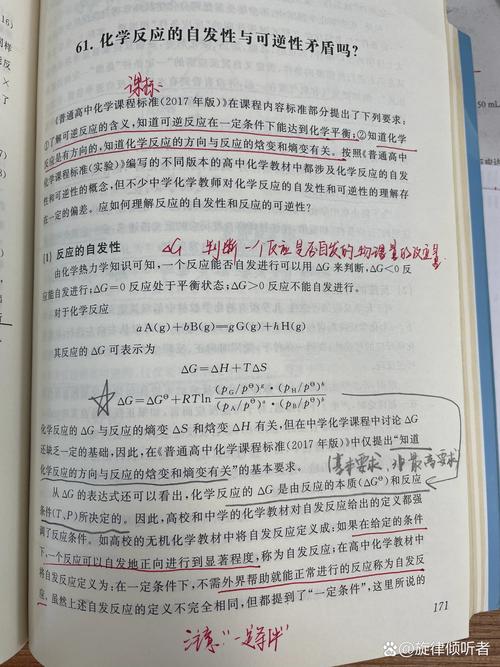 61. 化学反应的自发性与可逆性矛盾吗？
课标
《普通高中化学课程标准(2017 年版)》在课程内容标准部分提出了下列要求：
①了解可逆反应的含义，知道可逆反应在一定条件下能达到化学平衡；②知道化学
反应是有方向的，知道化学反应的方向与反应的焓变和熵变有关。按照《普通高中
化学课程标准(实验)》编写的不同版本的高中化学教材中都涉及化学反应的自发
性和可逆性的概念，但不少中学化学教师对化学反应的自发性和可逆性的理解存
在一定的偏差。应如何理解反应的自发性和反应的可逆性？
(1) 反应的自发性
△G 判断一个反应是否自发的物理量的反应量
由化学热力学知识可知，一个反应能否自发进行可以用 ΔG 来判断，ΔG<0 反
应能自发进行；ΔG=0 反应处于平衡状态；ΔG>0 反应不能自发进行。
对于化学反应
aA(g)+bB(g)═gG(g)+hH(g)
其反应的 ΔG 可表示为
ΔG=ΔH+TΔS
ΔG=ΔG⊖+RTln (pG/p⊖)g·(pH/p⊖)h / (pA/p⊖)a·(pB/p⊖)b
化学反应的 ΔG 与反应的熵变 ΔS 和焓变 ΔH 有关，但在中学化学课程中讨论 ΔG
还缺乏一定的基础，因此，在《普通高中化学课程标准(2017 年版)》中仅提出“知道
化学反应的方向与反应的焓变和熵变有关”的基本要求。
基本要求，非最高要求
从 ΔG 的表达式还可以看出，化学反应的 ΔG 是由反应的本质(ΔG⊖)和反应
条件(T、P)所决定的。因此，高校和中学的化学教材对自发反应给出的定义都强
调了反应条件。如高校的无机化学教材中将自发反应定义成：如果在给定的条件
下，一个反应可以自发地正向进行到显著程度，称为自发反应；在高中化学教材中
将自发反应定义为：在一定条件下，不需外界帮助就能正常进行的反应称为自发反
应。虽然上述自发反应的定义不完全相同，但都提到了“一定条件”，这里所说的
171
注意：“一定条件”
50 mL
16)
百家号/旋律倾听者